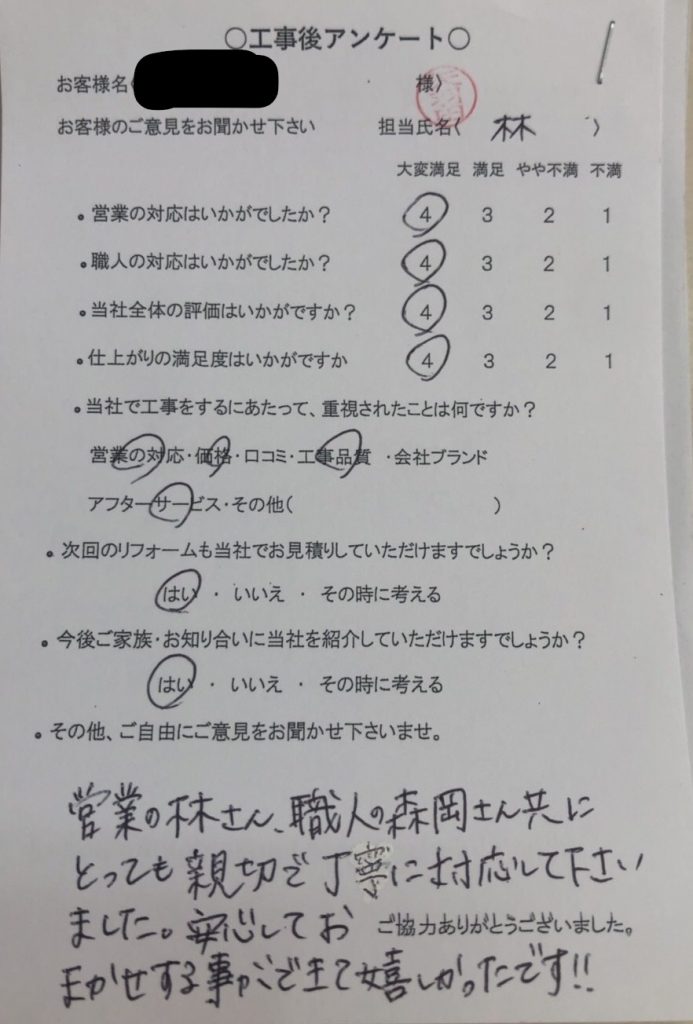 〇工事後アンケート〇
お客様名〈 様〉
お客様のご意見をお聞かせ下さい 担当氏名〈 林 〉
大変満足 満足 やや不満 不満
・営業の対応はいかがでしたか？ 4 3 2 1
・職人の対応はいかがでしたか？ 4 3 2 1
・当社全体の評価はいかがですか？ 4 3 2 1
・仕上がりの満足度はいかがですか 4 3 2 1
・当社で工事をするにあたって、重視されたことは何ですか？
営業の対応・価格・口コミ・工事品質 ・会社ブランド
アフターサービス・その他( )
・次回のリフォームも当社でお見積りしていただけますでしょうか？
はい ・ いいえ ・ その時に考える
・今後ご家族・お知り合いに当社を紹介していただけますでしょうか？
はい ・ いいえ ・ その時に考える
・その他、ご自由にご意見をお聞かせ下さいませ。
営業の林さん、職人の森岡さん共に
とっても親切で丁寧に対応して下さい
ました。安心してお
ご協力ありがとうございました。
まかせする事ができて嬉しかったです!!